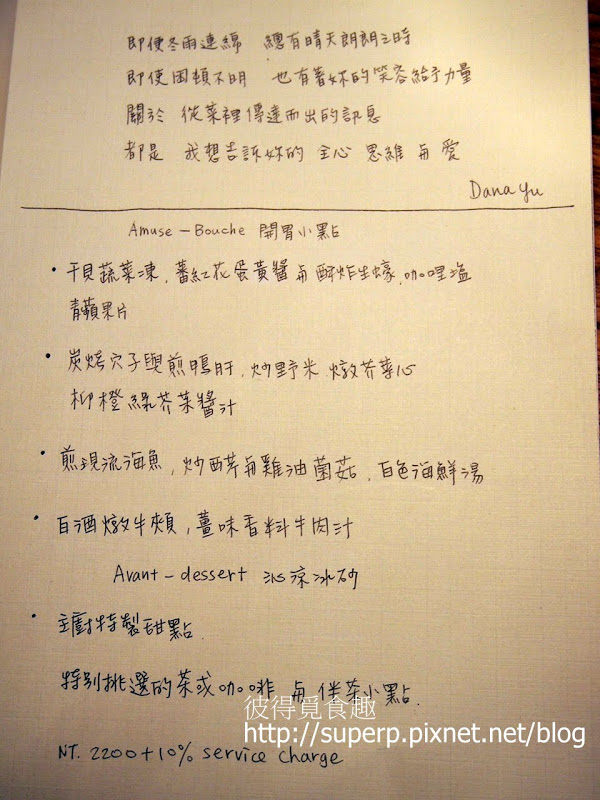 即使冬雨連綿 總有晴天朗朗之時
即使困頓不明 也有著妳的笑容給予力量
關於 從菜裡傳達而出的訊息
都是 我想告訴妳的 全心 思維 與 愛
Dana Yu
Amuse - Bouche 開胃小點
• 干貝蔬菜凍, 蕃紅花蛋黃醬與酥炸生蠔, 咖哩塩
青蘋果片
• 炭烤穴子與煎鴨肝, 炒野米 燉芥菜心
柳橙綠芥菜醬汁
• 煎現流海魚, 炒西芹與雞油菌菇, 白色海鮮湯
• 白酒燉牛頰, 薑味香料牛肉汁
Avant - dessert 沁涼冰砂
• 主廚特製甜點.
特別挑選的茶或咖啡 與 伴茶小點.
彼得覓食趣
http://superp.pixnet.net/blog
NT. 2200+10% service charge